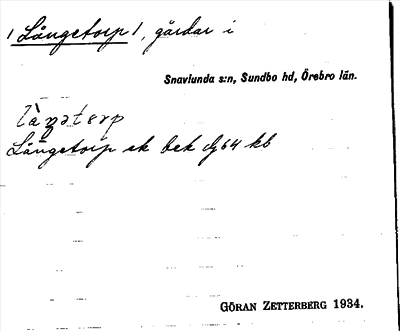 / Långetorp /, gårdar i
Snavlunda s:n, Sundbo hd, Örebro län.
Långetorp ek bek
GÖRAN ZETTERBERG 1934.